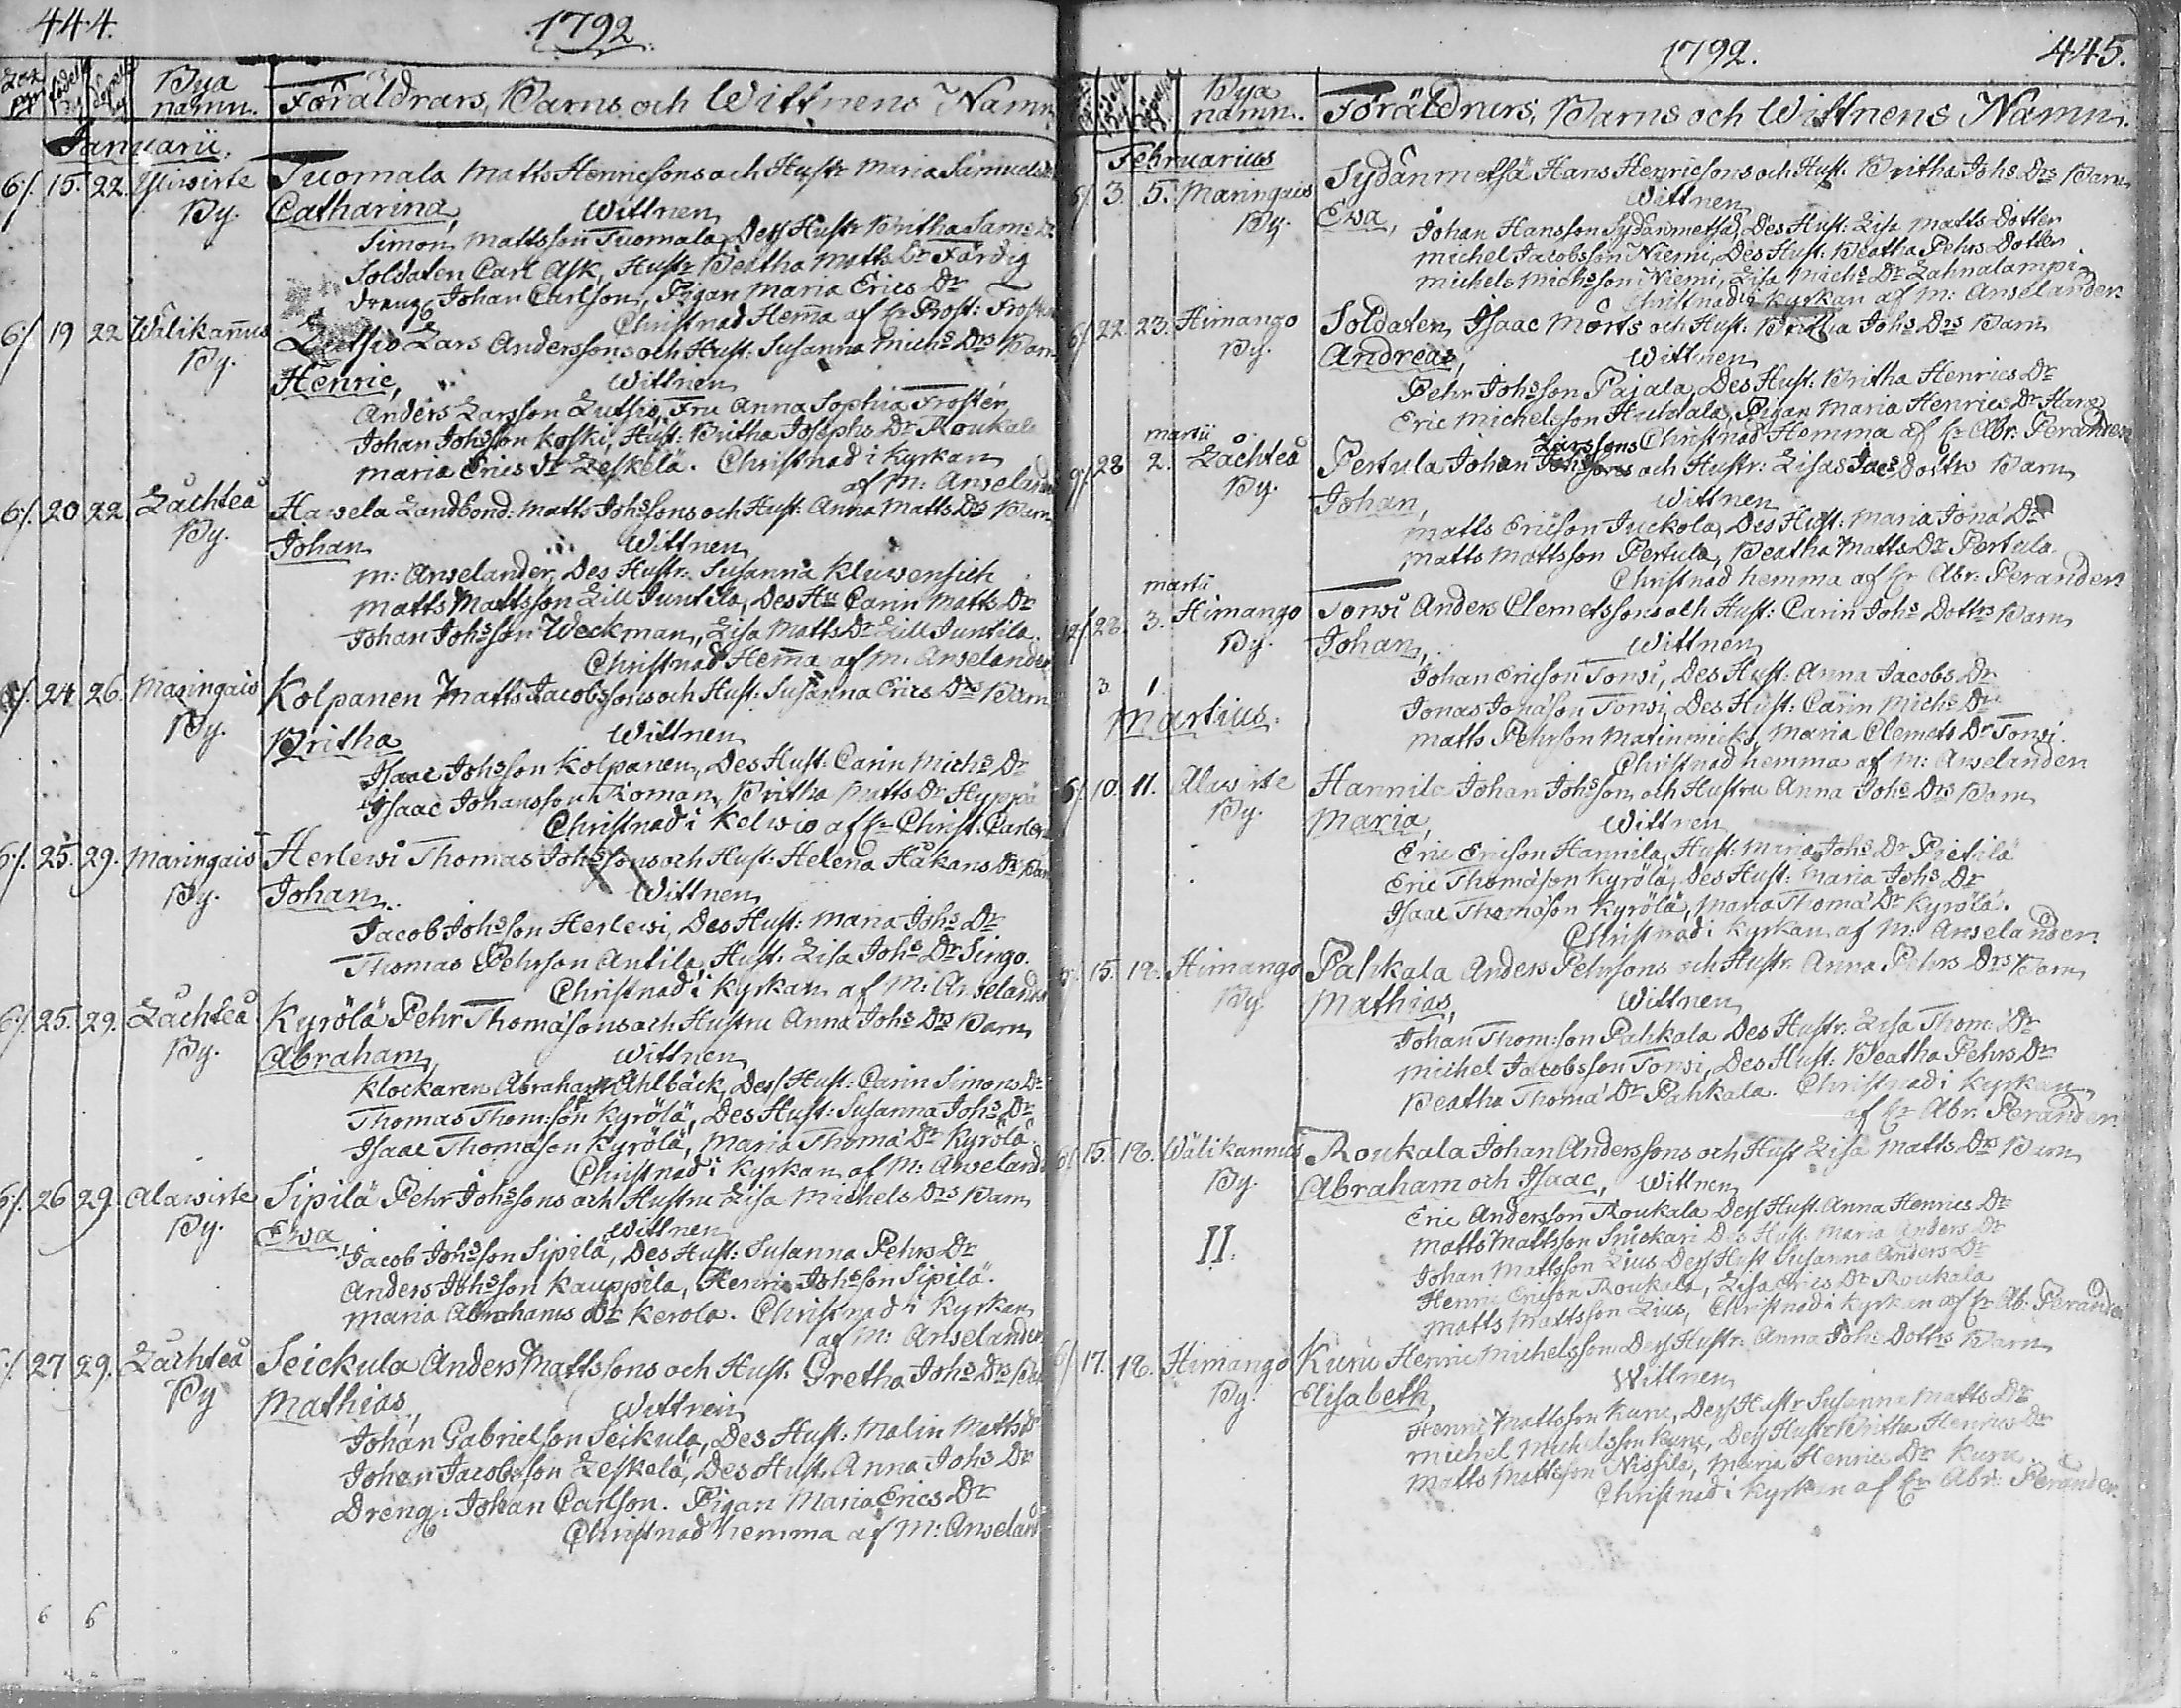 444.
1792
Bya namn.
Föräldrars, Barns och Wittnens Namn
Januarii.
6/. 15. 22. Yliwirte By. Tuomala Matts Henricsons och Hustr Maria Samuels
Catharina, Wittnen
Simon Mattsson Tuomala, Dess Hustr Britha Sams Dr
Soldaten Carl Ask, Hustr Beatha Matts Dr Färdig
Dreng Johan Carlson, Pigan Maria Erics Dr
Christnad Hem̄a af Hr Prost: Froster
6/. 19 22 Wälikan̄us By. Zutsio Lars Anderssons och Hust: Susanna Michs Drs Barn
Henric, Wittnen
Anders Larsson Zutsio, Fru Anna Sophia Frostér
Johan Johsson Koski, Hust: Britha Josephs Dr Roukala
Maria Erics Dr Leskelä. Christnad i Kyrkan
af M: Anseland
6/. 20 22 Låchteå By. Hawela Landbond: Matts Johssons och Hust: Anna Matts Drs Barn
Johan Wittnen
M: Anselander, Des Hustr: Susanna Kluwensich
Matts Mattsson Lill Juntila, Des Hu Carin Matts Dr
Johan Johsson Weckman, Lisa Matts Dr Lill Juntila.
Christnad Hem̄a af M. Anselander
6/. 24 26. Maringais By. Kolpanen Matts Jacobssons och Hust: Susanna Erics Drs Barn
Britha Wittnen
Isaac Johsson Kolpanen, Des Hust: Carin Michs Dr
Isaac Johansson Roman, Britha Matts Dr Hyppä
Christnad i Kelwio af Hr Christ: Carlen
6/. 25. 29. Maringais By. Herlewi Thomas Johssons och Hust: Helena Håkans Dr Barn
Johan. Wittnen
Jacob Johsson Herlewi, Des Hust: Maria Johs Dr
Thomas Pehrson Antila, Hust. Lisa Johs Dr Singo.
Christnad i Kyrkan af M: Anseland
6/. 25. 29. Låchteå By. Kyrölä Pehr Thomasons och Hustru Anna Johs Drs Barn
Abraham, Wittnen
Klockaren Abraham Ahlbäck, Dess Hust: Carin Simons Dr
Thomas Thom:son Kyrölä, Des Hust: Susanna Johs Dr
Isaac Thomason Kyrölä, Maria Thoma Dr Kyrölä.
Christnad i Kyrkan af M: Anseland
6/. 26 29. Alawirte By. Sipilä Pehr Johssons och Hustru Lisa Michels Drs Barn
Ewa Wittnen
Jacob Johsson Sipilä, Des Hust: Susanna Pehrs Dr
Anders Johsson Kauppila, Henric Johsson Sipilä.
Maria Abrahams Dr Kerola. Christnad i Kyrkan
af M: Anselander
27 29. Låchteå By Seickula Anders Mattssons och Hust. Gretha Johs Drs
Mathias, Wittnen
Johan Gabrielson Seikula, Des Hust: Malin Matts
Johan Jacobsson Leskelä, Des Hust, Anna Johs Dr
Dreng: Johan Carlson. Pigan Maria Erics Dr
Christnad hemma af M: Anseland
6 6
1792. 445.
Bya namn.
Föräldrars, Barns och Wittnens Namn.
Februarius
6/ 3. 5. Maringais By. Sydänmetsä Hans Henricsons och Hust. Britha Johs Drs Barn
Ewa, Wittnen
Johan Hansson Sydänmetsä, Des Hust: Lisa Matts Dotter
Michel Jacobsson Niemi, Des Hust: Beatha Pehrs Dotter
Michels Michsson Niemi, Lisa Michs Dr Lahnalampi
Christnad i Kyrkan af M: Anselander
6/ 22. 23. Himango By. Soldaten Isaac Mörts och Hust: Britha Johs Drs Barn
Andreas, Wittnen
Pehr Johsson Pajala, Des Hust: Britha Henrics Dr
Eric Michelsson Huhtala, Pigan Maria Henrics Dr Hara
Christnad Hemma af Hr Abr: Perander
Martii
28 2. Låchteå By. Pertula Johan Larssons och Hustr: Lisas Jacs Dotters Barn
Johan, Wittnen
Matts Ericson Juckola, Des Hust: Maria Jona Dr
Matts Mattsson Pertula, Beatha Matts Dr Pertula.
Christnad hemma af Hr Abr: Perander
Martii
28. 3. Himango By. Torwi Anders Clemetssons och Hust: Carin Johs Dotters Barn
Johan, Wittnen
Johan Ericson Torwi, Des Hust: Anna Jacobs Dr
Jonas Jonason Torwi, Des Hust: Carin Michs Dr
Matts Pehrson Matinmicko, Maria Clemets Dr Torwi.
Christnad hemma af M: Anselander
3 1.
Martius.
6/. 10. 11. Alawirte By. Hannila Johan Johsson och Hustru Anna Johs Drs Barn
Maria, Wittnen
Eric Ericson Hannila, Hust: Maria Johs Dr Pietilä
Eric Thomason Kyrölä, Des Hust: Maria Johs Dr
Isaac Thomason Kyrölä, Maria Thoma Dr Kyrölä.
Christnad i Kyrkan af M: Anselander
15. 18. Himango By. Pahkala Anders Pehrsons och Hustr. Anna Pehrs Drs Barn
Mathias, Wittnen
Johan Thom:son Pahkala Des Hustr. Lisa Thom: Dr
Michel Jacobsson Torwi, Des Hust: Beatha Pehrs Dr
Beatha Thoma Dr Pahkala. Christnad i Kyrkan
af Hr Abr. Perander
6/ 15. 18. Wälikannus By. Roukala Johan Anderssons och Hust Lisa Matts Drs Barn
Abraham och Isaac, Wittnen
Eric Andersson Roukala Dess Hust. Anna Henrics Dr
II. Matts Mattsson Snickari Des Hust. Maria Anders Dr
Johan Mattsson Zius Dess Hust Susanna Anders Dr
Henric Ericson Roukala, Lisa Erics Dr Roukala
Matts Mattsson Zius, Christnad i Kyrkan af Hr Ab: Perander
6/ 17. 18. Himango By. Kuru Henric Michelsson Dess Hustr. Anna Johs Dotters Barn
Elisabeth, Wittnen
Henric Mattsson Kuru, Dess Hustr Susanna Matts Dr
Michel Michelsson Kuru, Dess Hustr Britha Henrics Dr
Matts Mattsson Nissilä, Maria Henrics Dr Kuru.
Christnad i Kyrkan af Hr Abr: Perander.